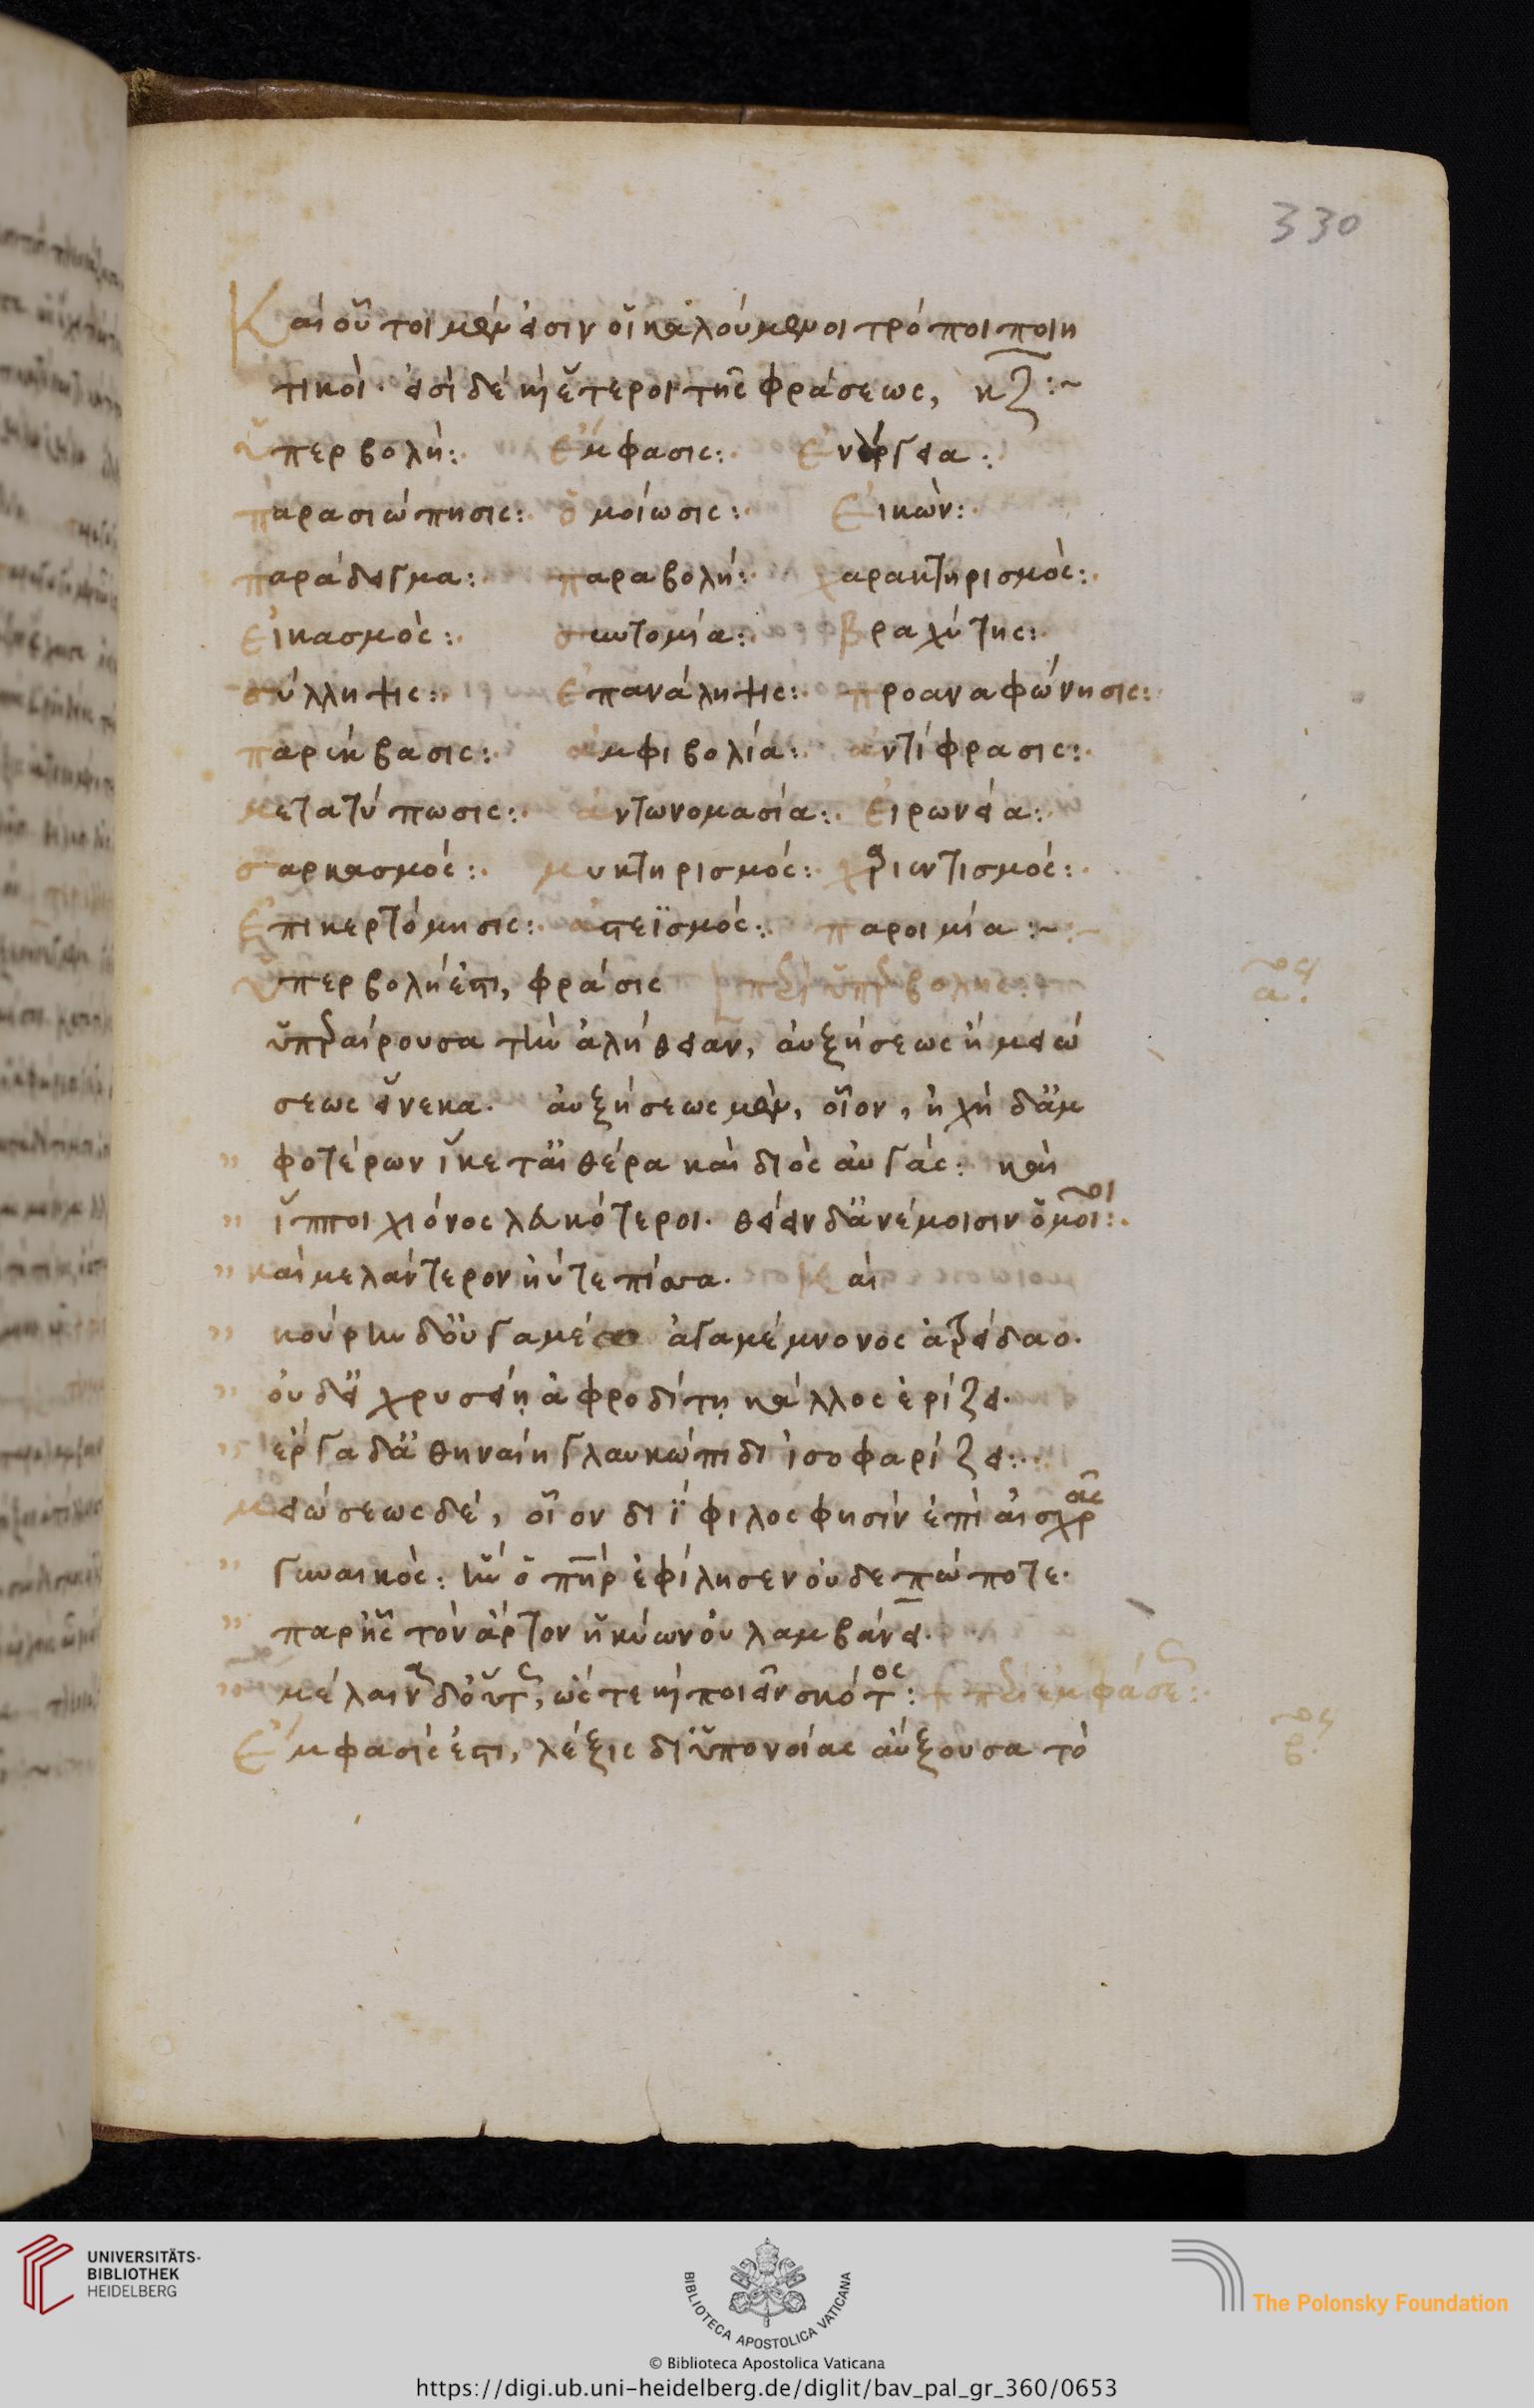 330
Καὶ οὗτοι μέν εἰσιν οἱ καλούμενοι τρόποι ποιη
τικοὶ· εἰσὶ δέ καὶ ἕτεροι τῆς φράσεως, κζ:~
ὑπερβολὴ:. Ἔμφασις:. Ἐνέργεια:
παρασιώπησις:. ὁμοίωσις:. Εἰκὼν:.
παράδειγμα:. παραβολή:. χαρακτηρισμὸς:.
Εἰκασμὸς:. συντομία:. βραχύτης:.
σύλληψις:. Ἐπανάληψις:. προαναφώνησις:
παρέκβασις:. ἀμφιβολία:. ἀντίφρασις:.
μετατύπωσις:. ἀντωνομασία:. Εἰρωνεία:.
σαρκασμός:. μυκτηρισμός:. χαριεντισμός:.
Ἐπικερτόμησις:. ἀστεϊσμός:. παροιμία:~
Ὑπερβολή ἐστι, φράσις περὶ ὑπερβολῆς:
ὑπεραίρουσα τὴν ἀλήθειαν, αὐξήσεως ἢ μειώ
σεως εἵνεκα. αὐξήσεως μὲν, οἷον, ἠχὴ δ' ἀμ
φοτέρων ἵκετ' αἰθέρα καὶ διὸς αὐγάς: καὶ
ἵπποι χιόνος λευκότεροι. θείειν δ' ἀνέμοισιν ὁμοῖοι:.
καὶ μελάντερον ἠύτε πίσσα. Καὶ
κούρην δ' οὐ γαμέω ἀγαμέμνονος ἀτρείδαο.
οὐδ' εἰ χρυσείῃ ἀφροδίτῃ κάλλος ἐρίζει.
ἔργα δ' ἀθηναίη γλαυκώπιδι ἰσοφαρίζει:.
μειώσεως δέ, οἷον διίφιλος φησίν ἐπὶ αἰσχρᾶς
γυναικὸς: ἣν ὁ πηρ ἐφίλησεν οὐδεπώποτε.
παρ' ἧς τὸν ἄρτον ἡ κύων οὐ λαμβάνει.
μέλαινα δ' οὕτως, ὥστε καὶ ποιεῖν σκότος: περὶ ἐμφάσεως:
Ἔμφασίς ἐστι, λέξις δι' ὑπονοίας αὔξουσα τὸ
α.
β.
UNIVERSITÄTS-
BIBLIOTHEK
HEIDELBERG
BIBLIOTECA APOSTOLICA VATICANA
The Polonsky Foundation
© Biblioteca Apostolica Vaticana
https://digi.ub.uni-heidelberg.de/diglit/bav_pal_gr_360/0653